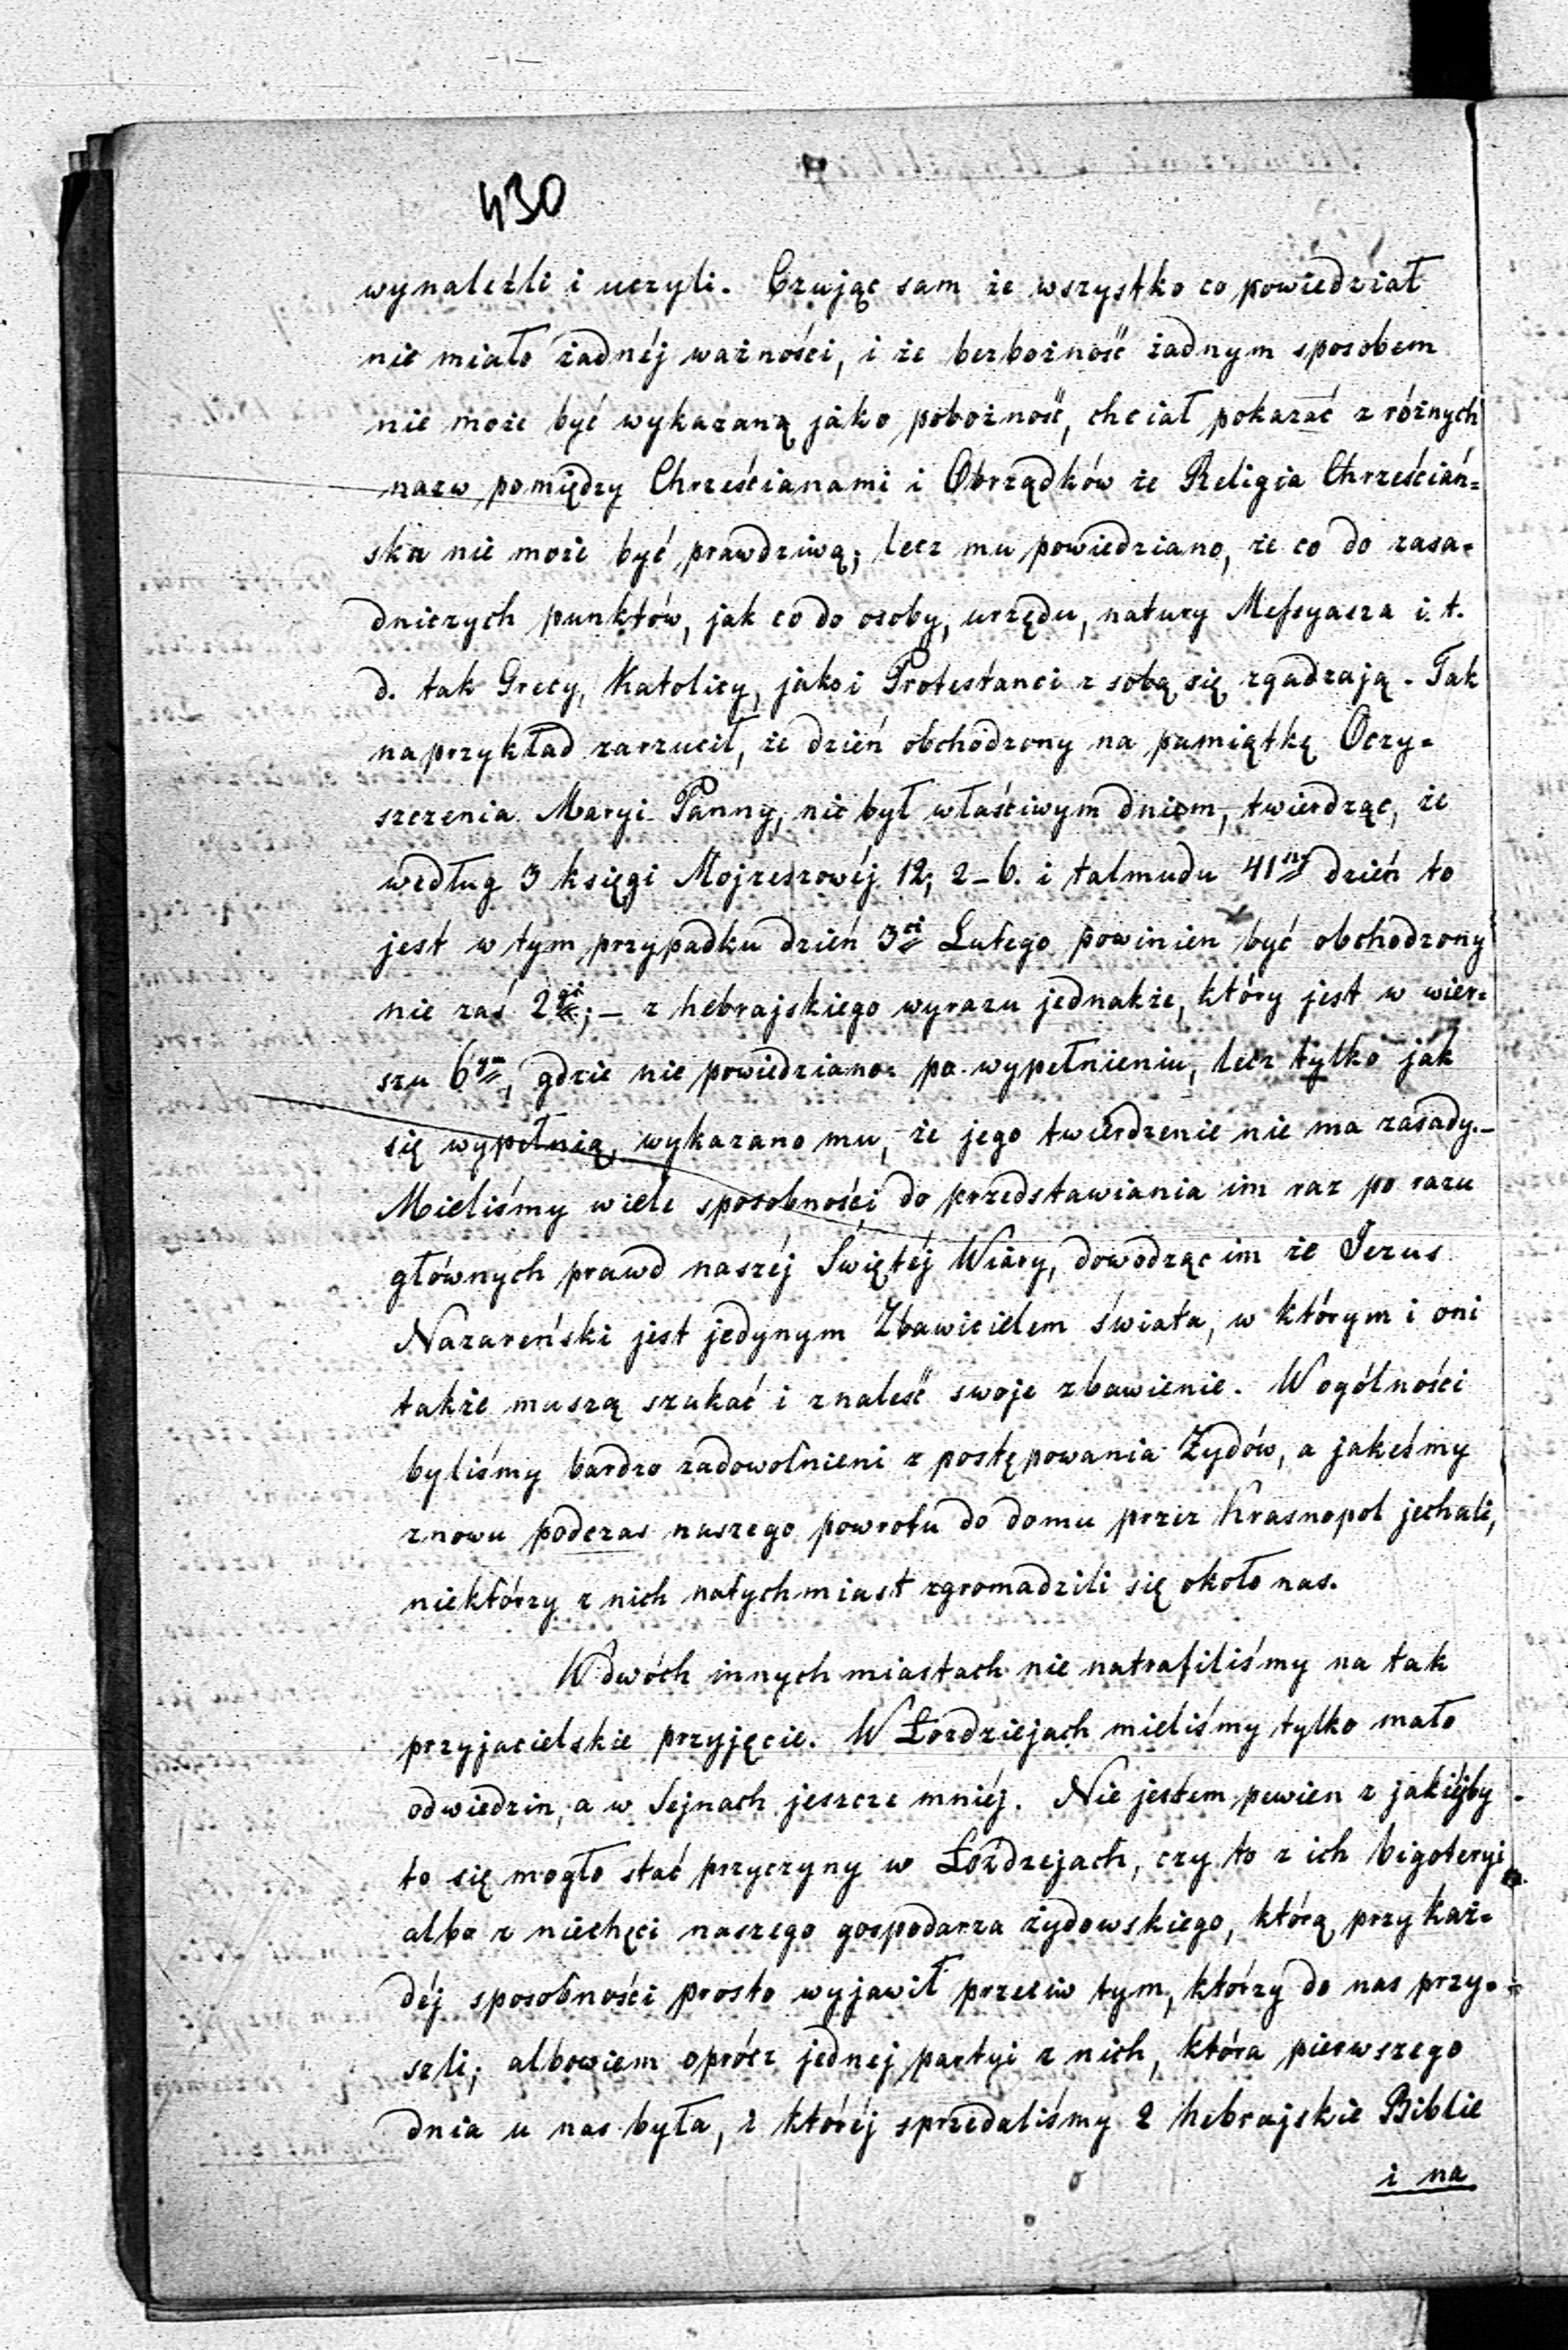 430
wynaleźli i uczyli. Czując sam że wszystko co powiedział
nie miało żadnéj ważności, i że bezbożność żadnym sposobem
nie może być wykazaną jako pobożność, chciał pokazać z różnych
nazw pomiędzy Chrześcianami i Obrządków że Religia Chrześciań=
ska nie może być prawdziwą; lecz mu powiedziano, że co do zasa=
dniczych punktów, jak co do osoby, urzędu, natury Messyasza i. t.
d. tak Grecy, Katolicy, jako i Protestanci z sobą się zgadzają. Tak
naprzykład zarzucił, że dzień obchodzony na pamiątkę Oczy=
szczenia Maryi Panny, nie był właściwym dniem, twierdząc, że
według 3 księgi Mojzeszowéj 12; 2–6. i talmudu 41szy dzień to
jest w tym przypadku dzień 3ci Lutego powinien być obchodzony
nie zaś 2gi; – z hebrajskiego wyrazu jednakże, który jest w wier=
szu 6ym, gdzie nie powiedziano: po wypełnieniu, lecz tylko jak
się wypełnią, wykazano mu, że jego twierdzenie nie ma zasady. –
Mieliśmy wiele sposobności do przedstawiania im raz po razu
głównych prawd naszéj Świętéj Wiary, dowodząc im że Jezus
Nazareński jest jedynym Zbawicielem świata, w którym i oni
także muszą szukać i znaleść swoje zbawienie. W ogólności
byliśmy bardzo zadowolnieni z postępowania Żydów, a jakeśmy
znowu podczas naszego powrotu do domu przez Krasnopol jechali,
niektórzy z nich natychmiast zgromadzili się około nas.
W dwóch innych miastach nie natrafiliśmy na tak
przyjacielskie przyjęcie. W Łozdziejach mieliśmy tylko mało
odwiedzin, a w Sejnach jeszcze mniéj. Nie jestem pewien z jakiéjby
to się mogło stać przyczyny w Łoździejach, czy to z ich bigoteryi
albo z niechęci naszego gospodarza żydowskiego, którą przy każ=
déj sposobności prosto wyjawił przeciw tym, którzy do nas przy=
szli; albowiem oprócz jednej partyi z nich, która pierwszego
dnia u nas była, i któréj sprzedaliśmy 2 hebrajskie Biblie
i na